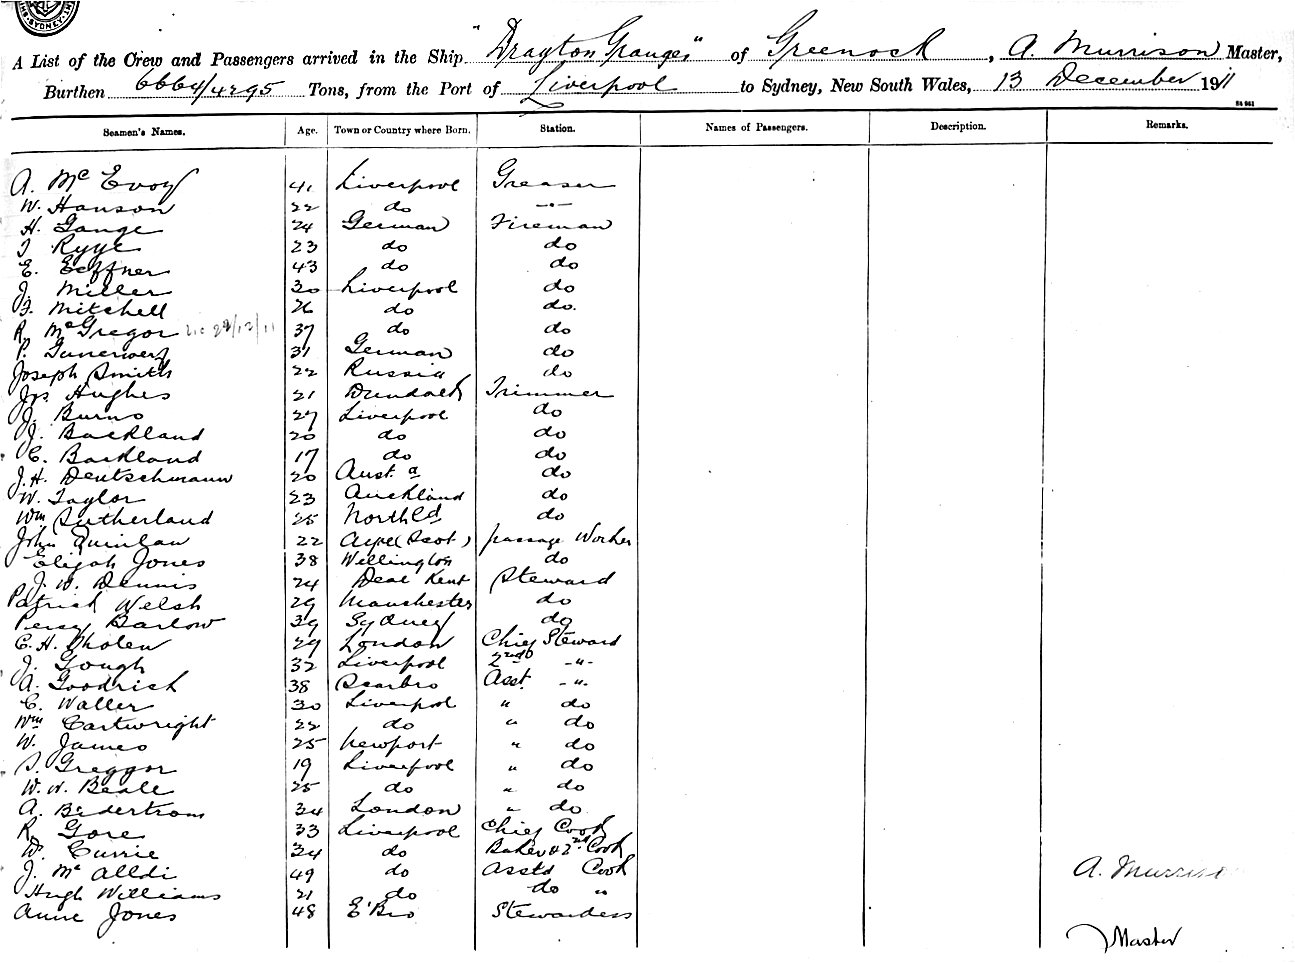 SYDNEY
A List of the Crew and Passengers arrived in the Ship "Drayton Grange" of Greenock, A. Murrison Master,
Burthen 6664/4295 Tons, from the Port of Liverpool to Sydney, New South Wales, 13 December 1911
Seamen's Names. Age. Town or Country where Born. Station. Names of Passengers. Description. Remarks.
A. McEvoy 41 Liverpool Greaser
W. Hanson 22 do -"-
H. Gange 24 German Fireman
23 do do
E. 43 do do
J. Miller 30 Liverpool do
F. Mitchell 26 do do.
R. McGregor 22/12/11 37 do do
P. 31 German do
Joseph Smith 22 Russia do
Jas Hughes 21 Dundalk Trimmer
J. Burns 27 Liverpool do
J. Backland 20 do do
C. Backland 17 do do
J.H. Deutschmann 20 Aust.a do
W. Taylor 23 Auckland do
Wm Sutherland 25 do
John Quinlan 22 (Scot) passage Worker
Elijah Jones 38 Wellington do
J. W. Dennis 24 Deal Kent Steward
Patrick Welsh 29 Manchester do
Percy Barlow 39 Sydney do
C.H. 29 London Chief Steward
J. Gough 32 Liverpool 2nd -"-
A. Goodrich 38 Scarbro Asst. -"-
C. Waller 30 Liverpool " do
Wm Cartwright 22 do " do
W. James 25 Newport " do
S. Greggor 19 Liverpool " do
W. N. Beale 25 do " do
A. Bedertrom 34 London " do
R. Gore 33 Liverpool Chief Cook
W. Currie 34 do Baker & 2nd Cook
J. McAlldi 49 do Asstd Cook
Hugh Williams 21 do do "
Annie Jones 48 E'Bro Stewardess
A. Murrison
Master